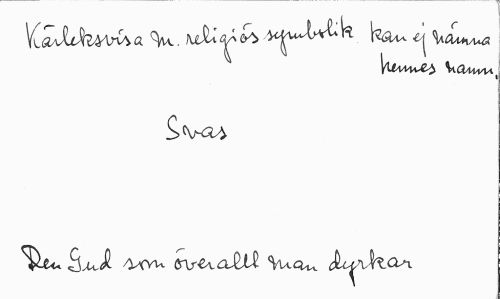 Kärleksvisa m. religiös symbolik kan ej nämna
hennes namn.
Svas
Den Gud som överallt man dyrkar